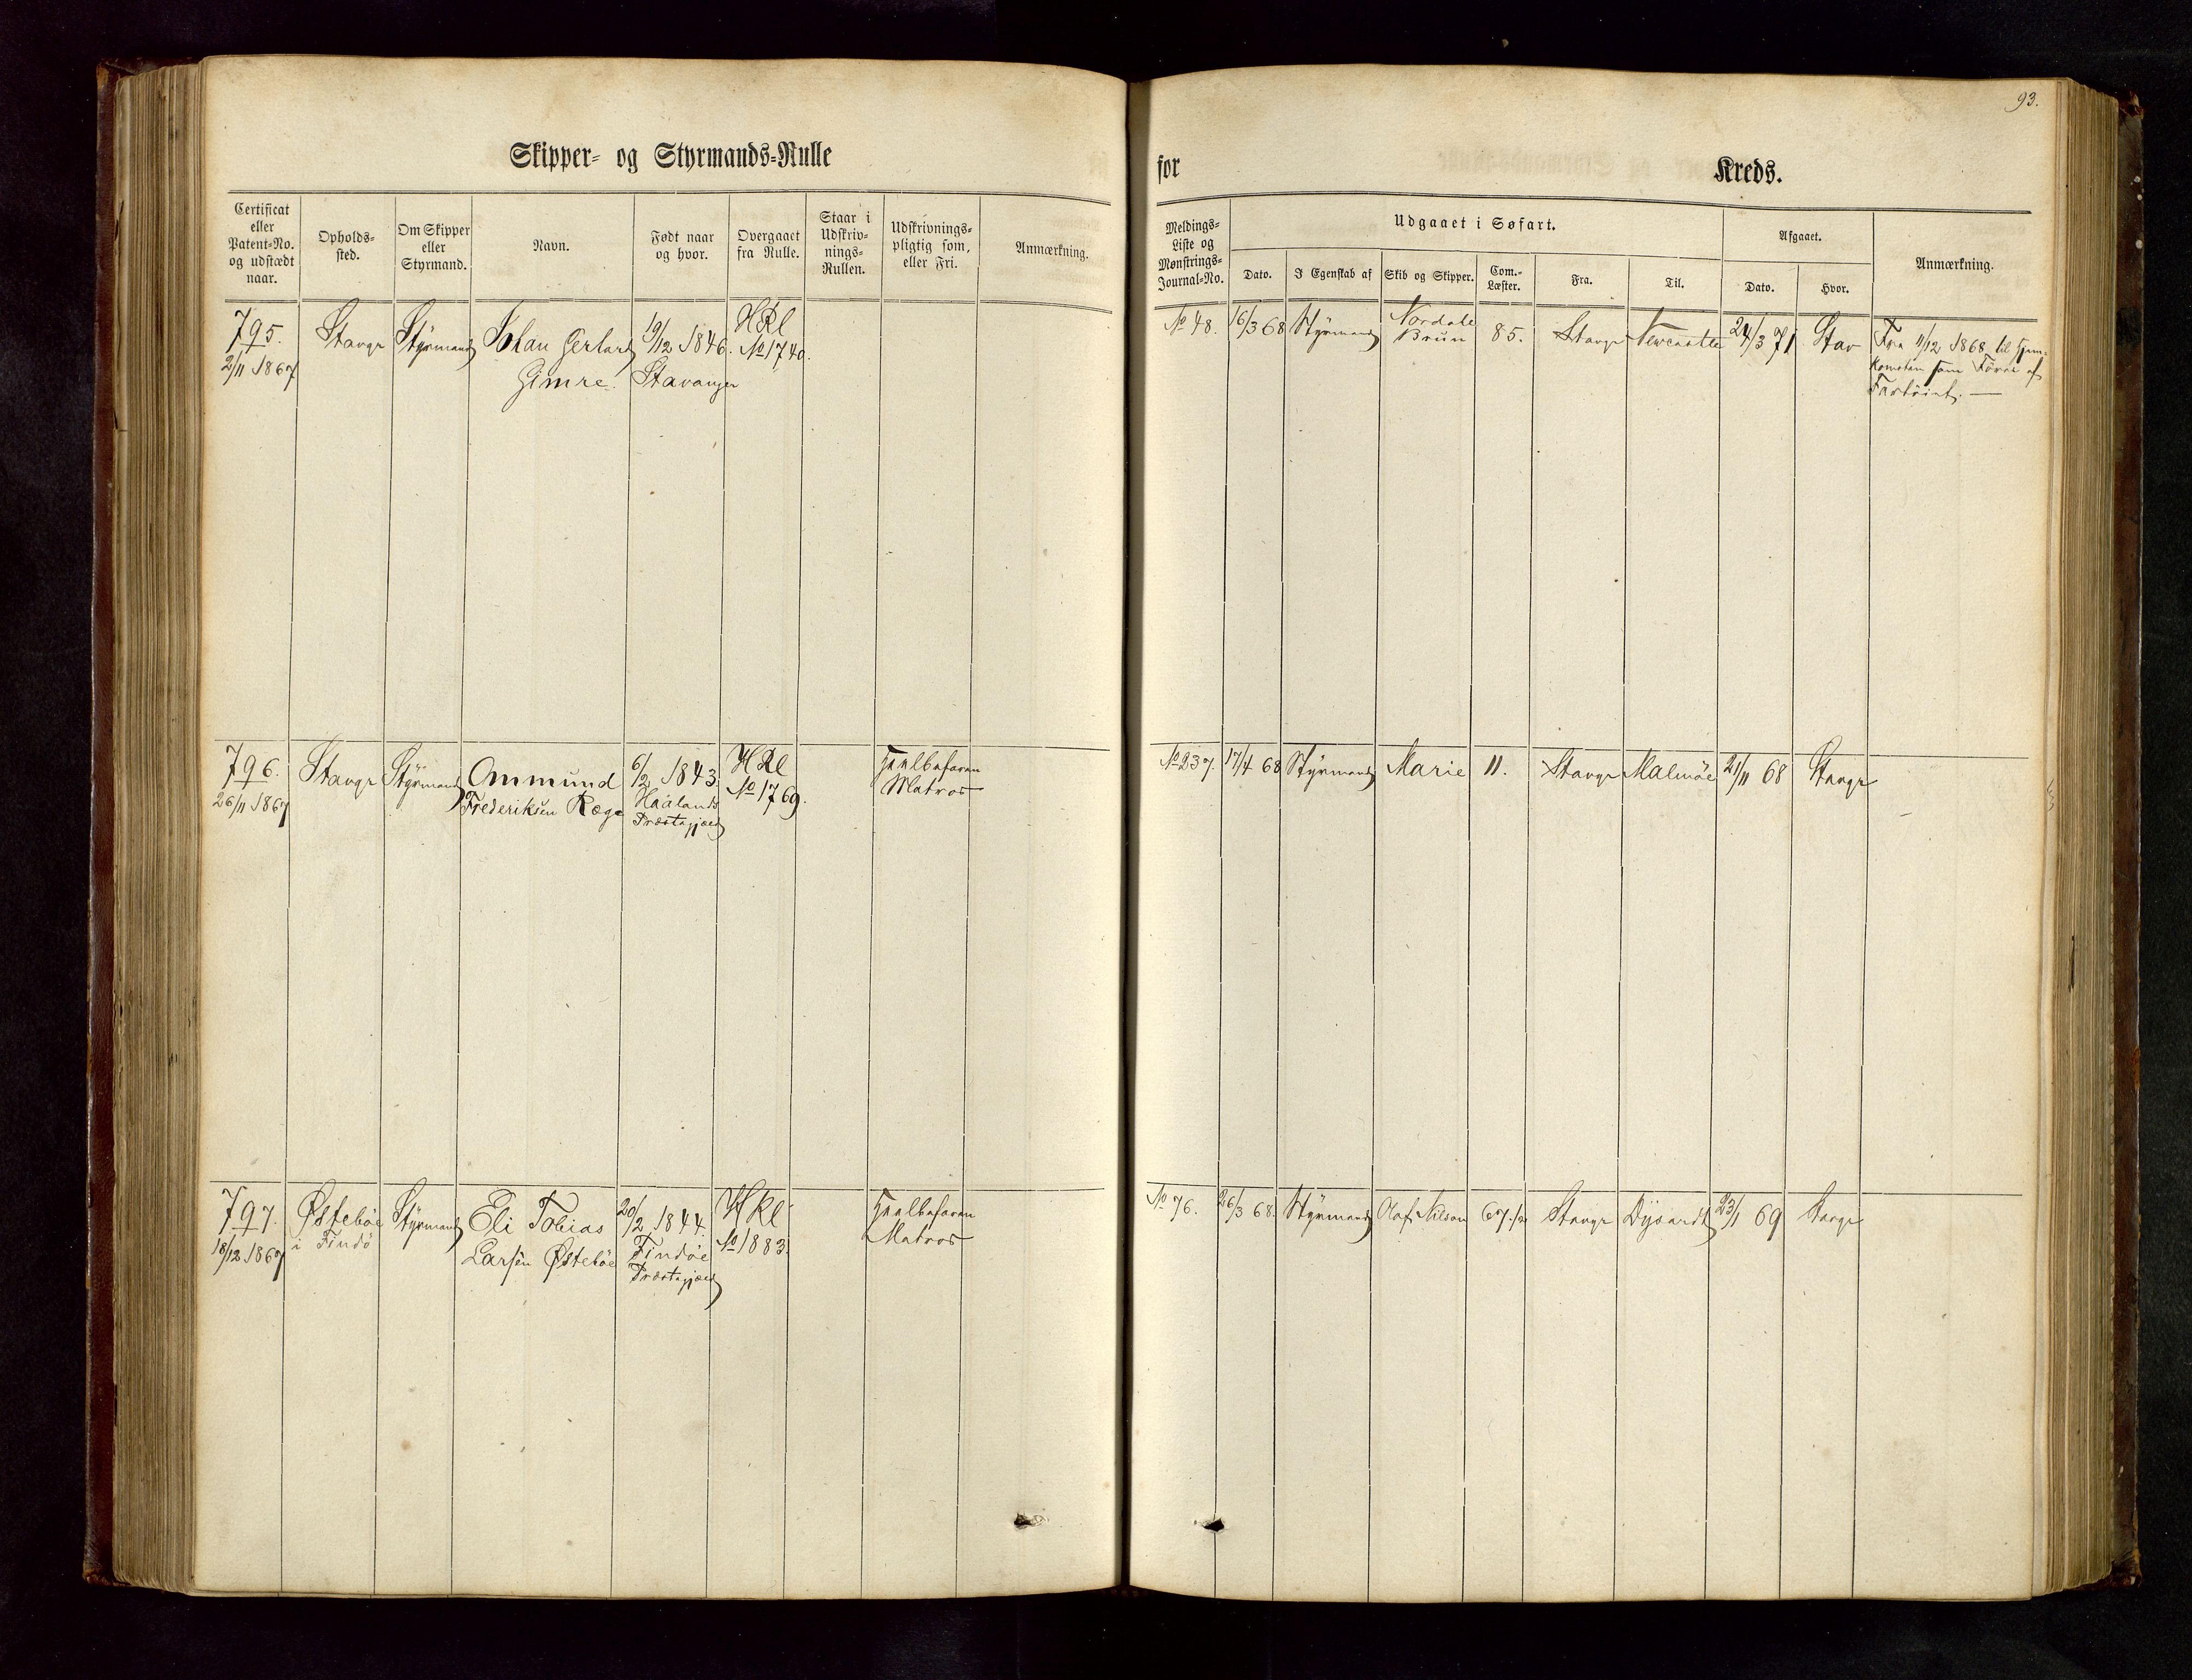 93.
Skipper- og Styrmands-Rulle
for Kreds.
Certificat eller Patent-No. og udstædt naar.
Opholds-sted.
Om Skipper eller Styrmand.
Navn.
Født naar og hvor.
Overgaaet fra Rulle.
Staar i Udskriv-nings-Rullen.
Udskrivnings-pligtig som, eller Fri.
Anmærkning.
Meldings-Liste og Mønstrings-Journal-No.
Udgaaet i Søfart.
Dato.
I Egenskab af
Skib og Skipper.
Com.-Læster.
Fra.
Til.
Afgaaet.
Dato.
Hvor.
Anmærkning.
795.
2/11 1867
Stavgr
Styrmand
Johan Gerhard
Gimre.
19/12 1846.
Stavanger
HRl
No 1740.
No 48.
16/3 68
Styrmand
Nordahl
Brun
85.
Stavgr
Newcastle
24/3 71
Stav
Fra 11/12 1868 til Hjem-
komsten som Fører af
Fartöiet. —
796.
26/11 1867
Stavgr
Styrmand
Ommund
Frederiksen Rege
6/2 1843.
Haalands
Præstegjæld
HRl
No 1769.
Hælbefaren
Matros
No 237.
17/4 68
Styrmand
Marie
11.
Stavgr
Malmöe
21/11 68
Stavgr
797.
18/12 1867
Østeböe
i Findö
Styrmand
Eli Tobias
Larsen Østeböe
20/2 1844.
Findöe
Præstegjæld
HRl
No 1883.
Hælbefaren
Matros
No 76.
26/3 68.
Styrmand
Olaf Nilson
67.1/2
Stavgr
Dysardt
23/1 69
Stavgr